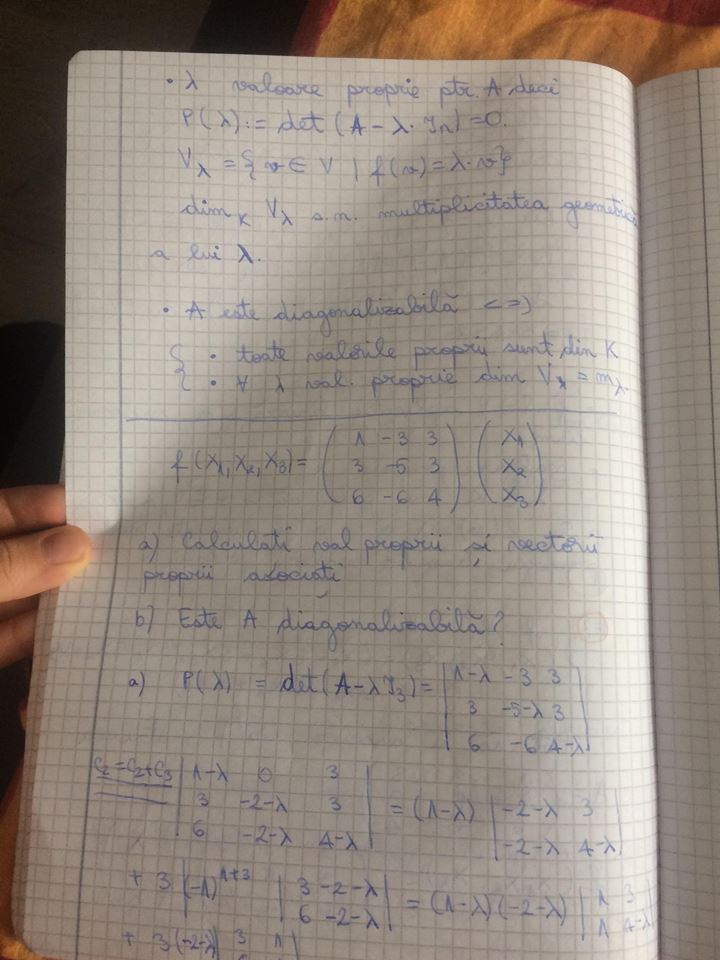 • λ valoare proprie ptr. A deci
P(λ) := det (A - λ · I_n) = 0.
V_λ = { v ∈ V | f(v) = λ · v }
dim_K V_λ s.n. multiplicitatea geometrică
a lui λ.
• A este diagonalizabilă <=>
{ • toate valorile proprii sunt din K
• ∀ λ val. proprie dim V_λ = m_λ.
f(x_1, x_2, x_3) = ( 1 -3 3 ) ( x_1 )
3 -5 3 x_2
6 -6 4 x_3
a) Calculati val proprii și vectorii
proprii asociați
b) Este A diagonalizabilă?
a) P(λ) = det(A - λ I_3) = | 1-λ -3 3 |
3 -5-λ 3
6 -6 4-λ
C_2 = C_2 + C_3 | 1-λ 0 3 |
3 -2-λ 3 = (1-λ) | -2-λ 3 |
6 -2-λ 4-λ | -2-λ 4-λ |
+ 3 (-1)^{1+3} | 3 -2-λ | = (1-λ)(-2-λ) | 1 3 |
| 6 -2-λ | | 1 4-λ |
+ 3(-2-λ) | 3 1 |